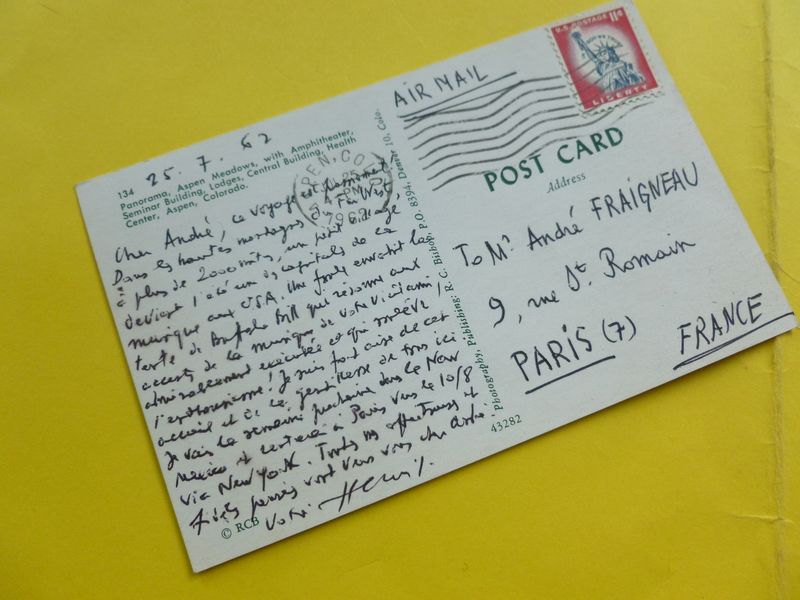 25.7.62
134
Panorama, Aspen Meadows, with Amphitheater,
Seminar Building, Lodges, Central Building, Health
Center, Aspen, Colorado.
Cher André, ce voyage est passionnant
Dans les hautes montagnes du Far West,
à plus de 2000 mts, un petit village,
devient l'été un des capitales de la
musique aux USA. Une foule envahit la
tente de Buffalo Bill qui résonne aux
accents de la musique de votre vieil ami
admirablement exécutée et qui soulève
l'enthousiasme! Je suis fort aise de cet
accueil et de la gentillesse de tous ici.
Je vais la semaine prochaine dans le New
Mexico et rentrerai à Paris vers le 10/8
via New York. Toutes mes affectueuses et
pensées vont vers vous cher André.
Votre Henri.
© RCB
Photography, Publishing: R. C. Bishop, P.O. 8394, Denver 10, Colo.
43282
ASPEN, COLO.
25
PM
1962
AIR MAIL
U.S. POSTAGE 11¢
LIBERTY
POST CARD
Address
To Mr André FRAIGNEAU
9, rue St. Romain
PARIS (7)
FRANCE